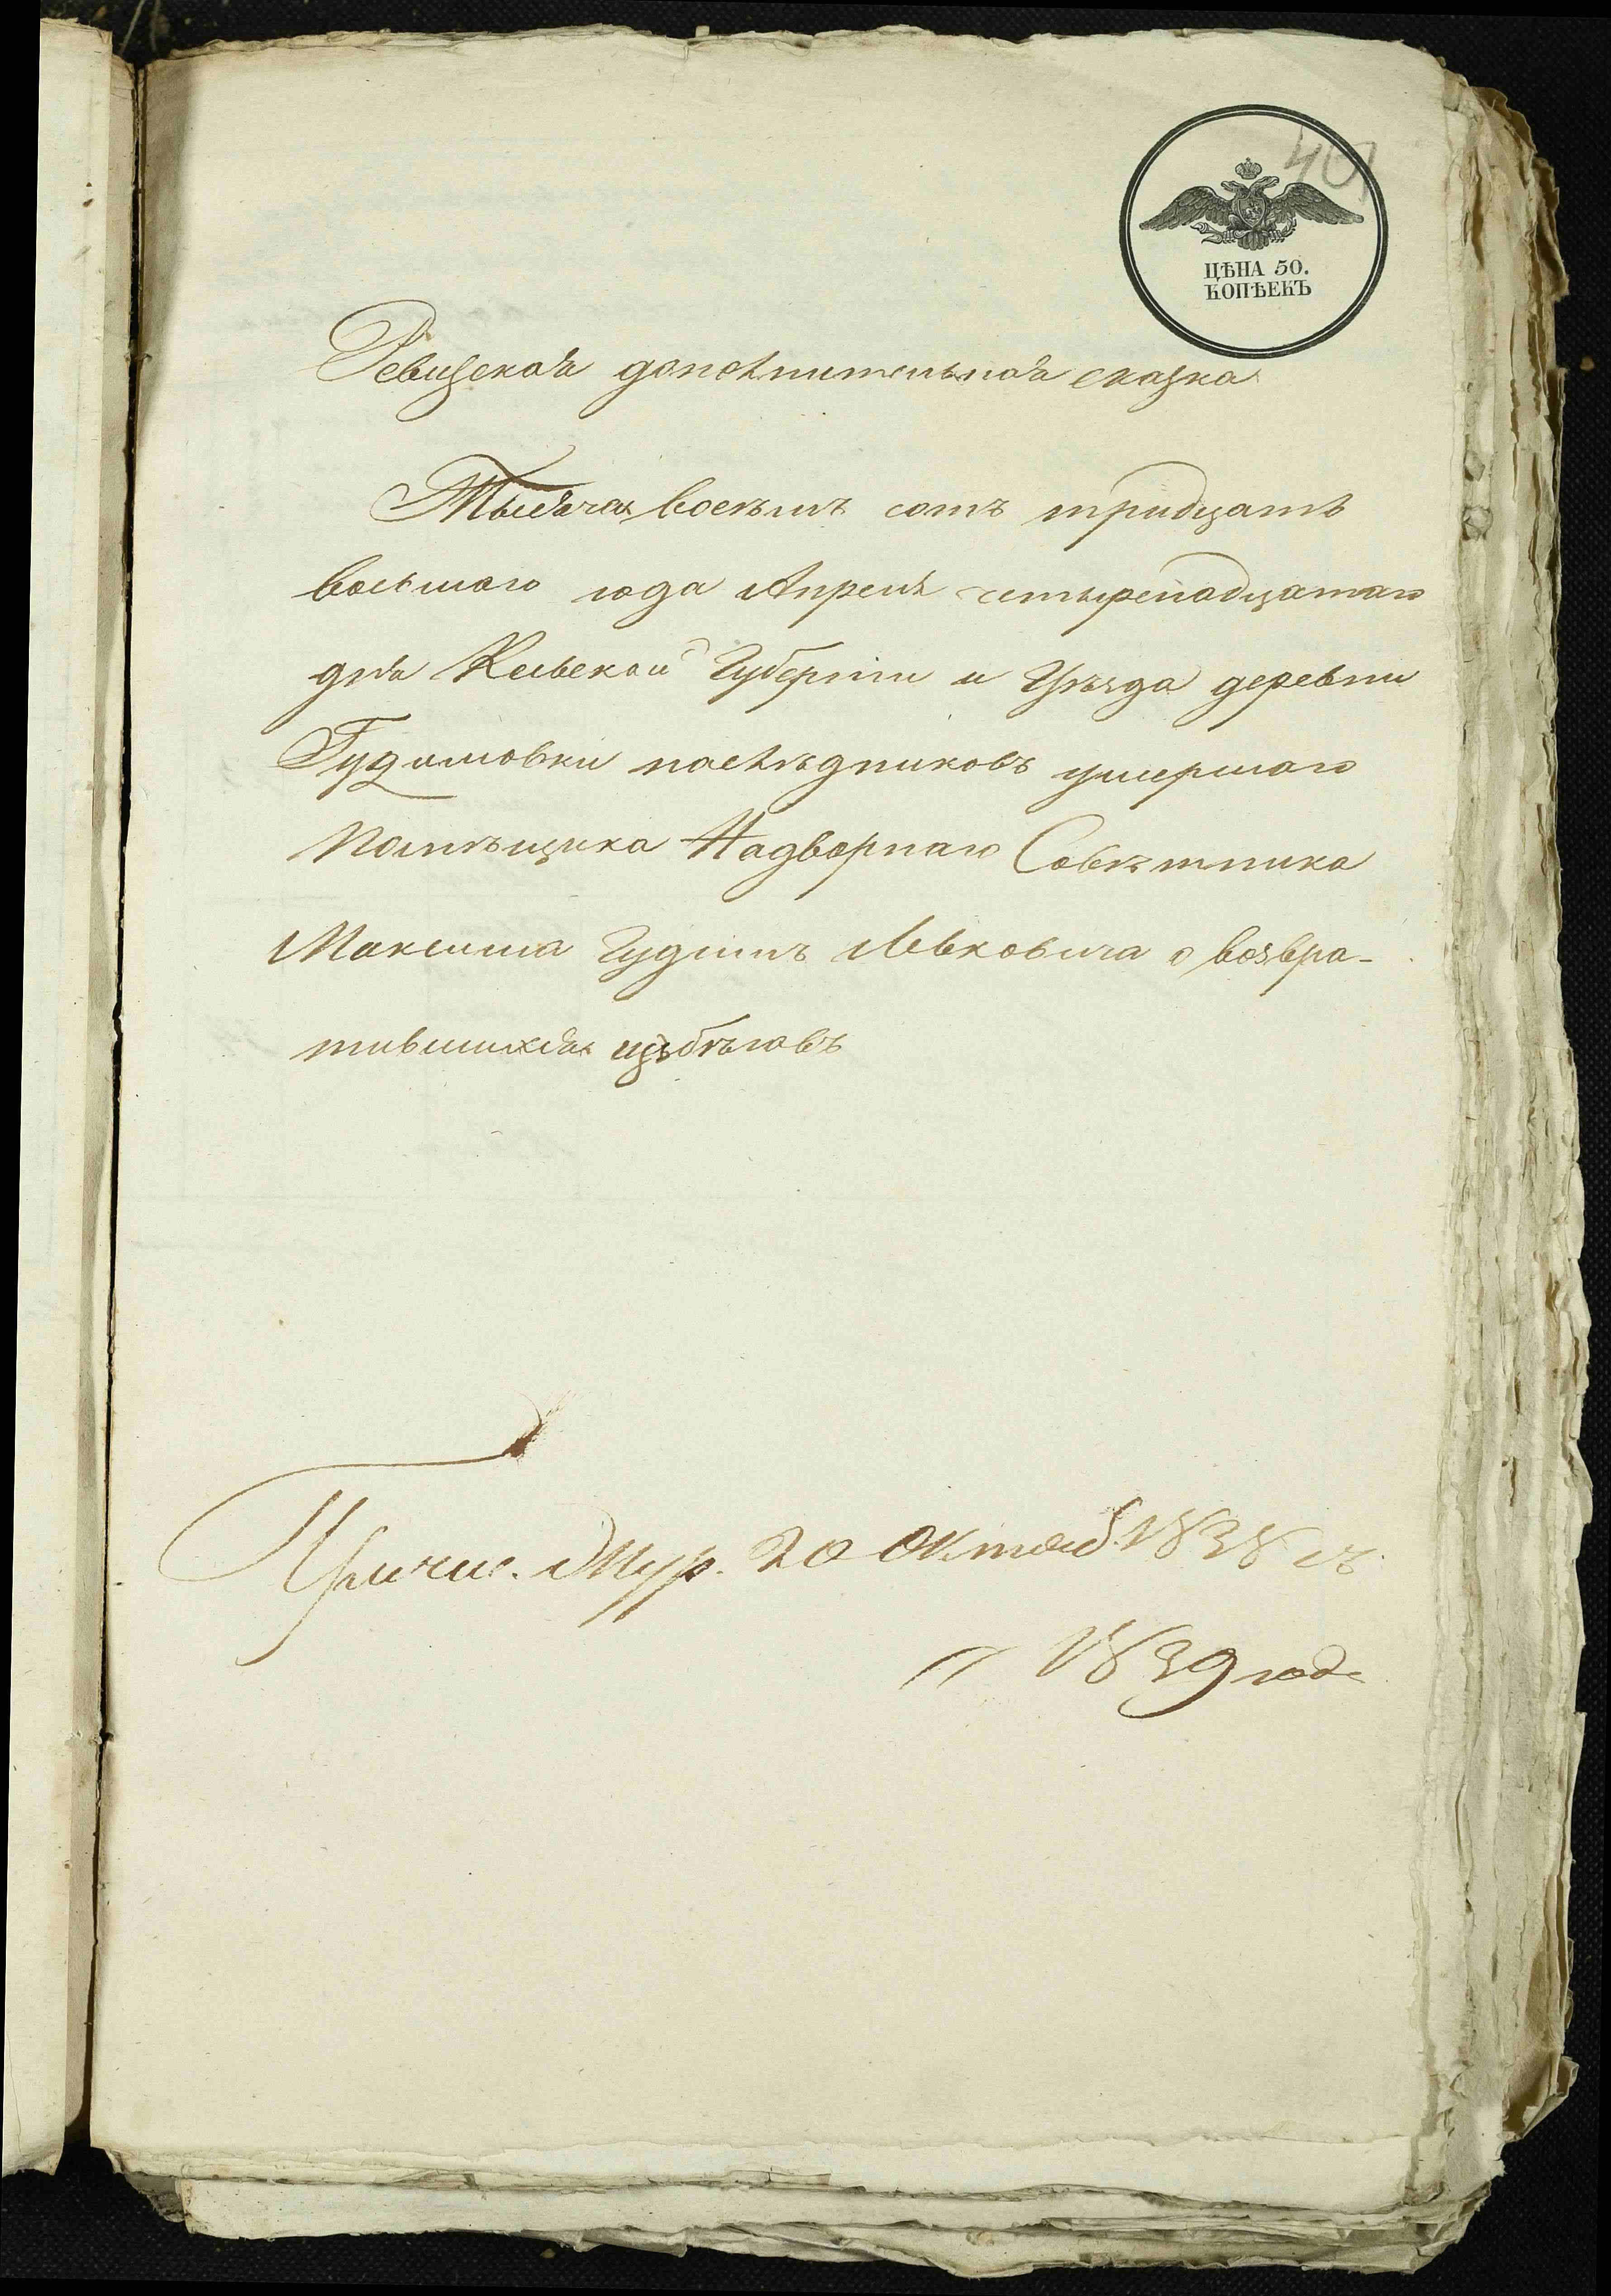 40
ЦѢНА 50.
КОПѢЕКЪ
Ревизская дополнительная сказка
Тысяча восемъ сотъ тридцать
восьмого года Апреля четыренадцатаго
дня Киевской Губерніи и Уѣзда деревни
Гудимовки наслѣдниковъ умершаго
Помѣщика Надворнаго Совѣтника
Максима Гудимъ Левковича о возвра-
тившихся изъ бѣговъ
Причис. Жур. 20 Октяб. 1838 съ
1839 года